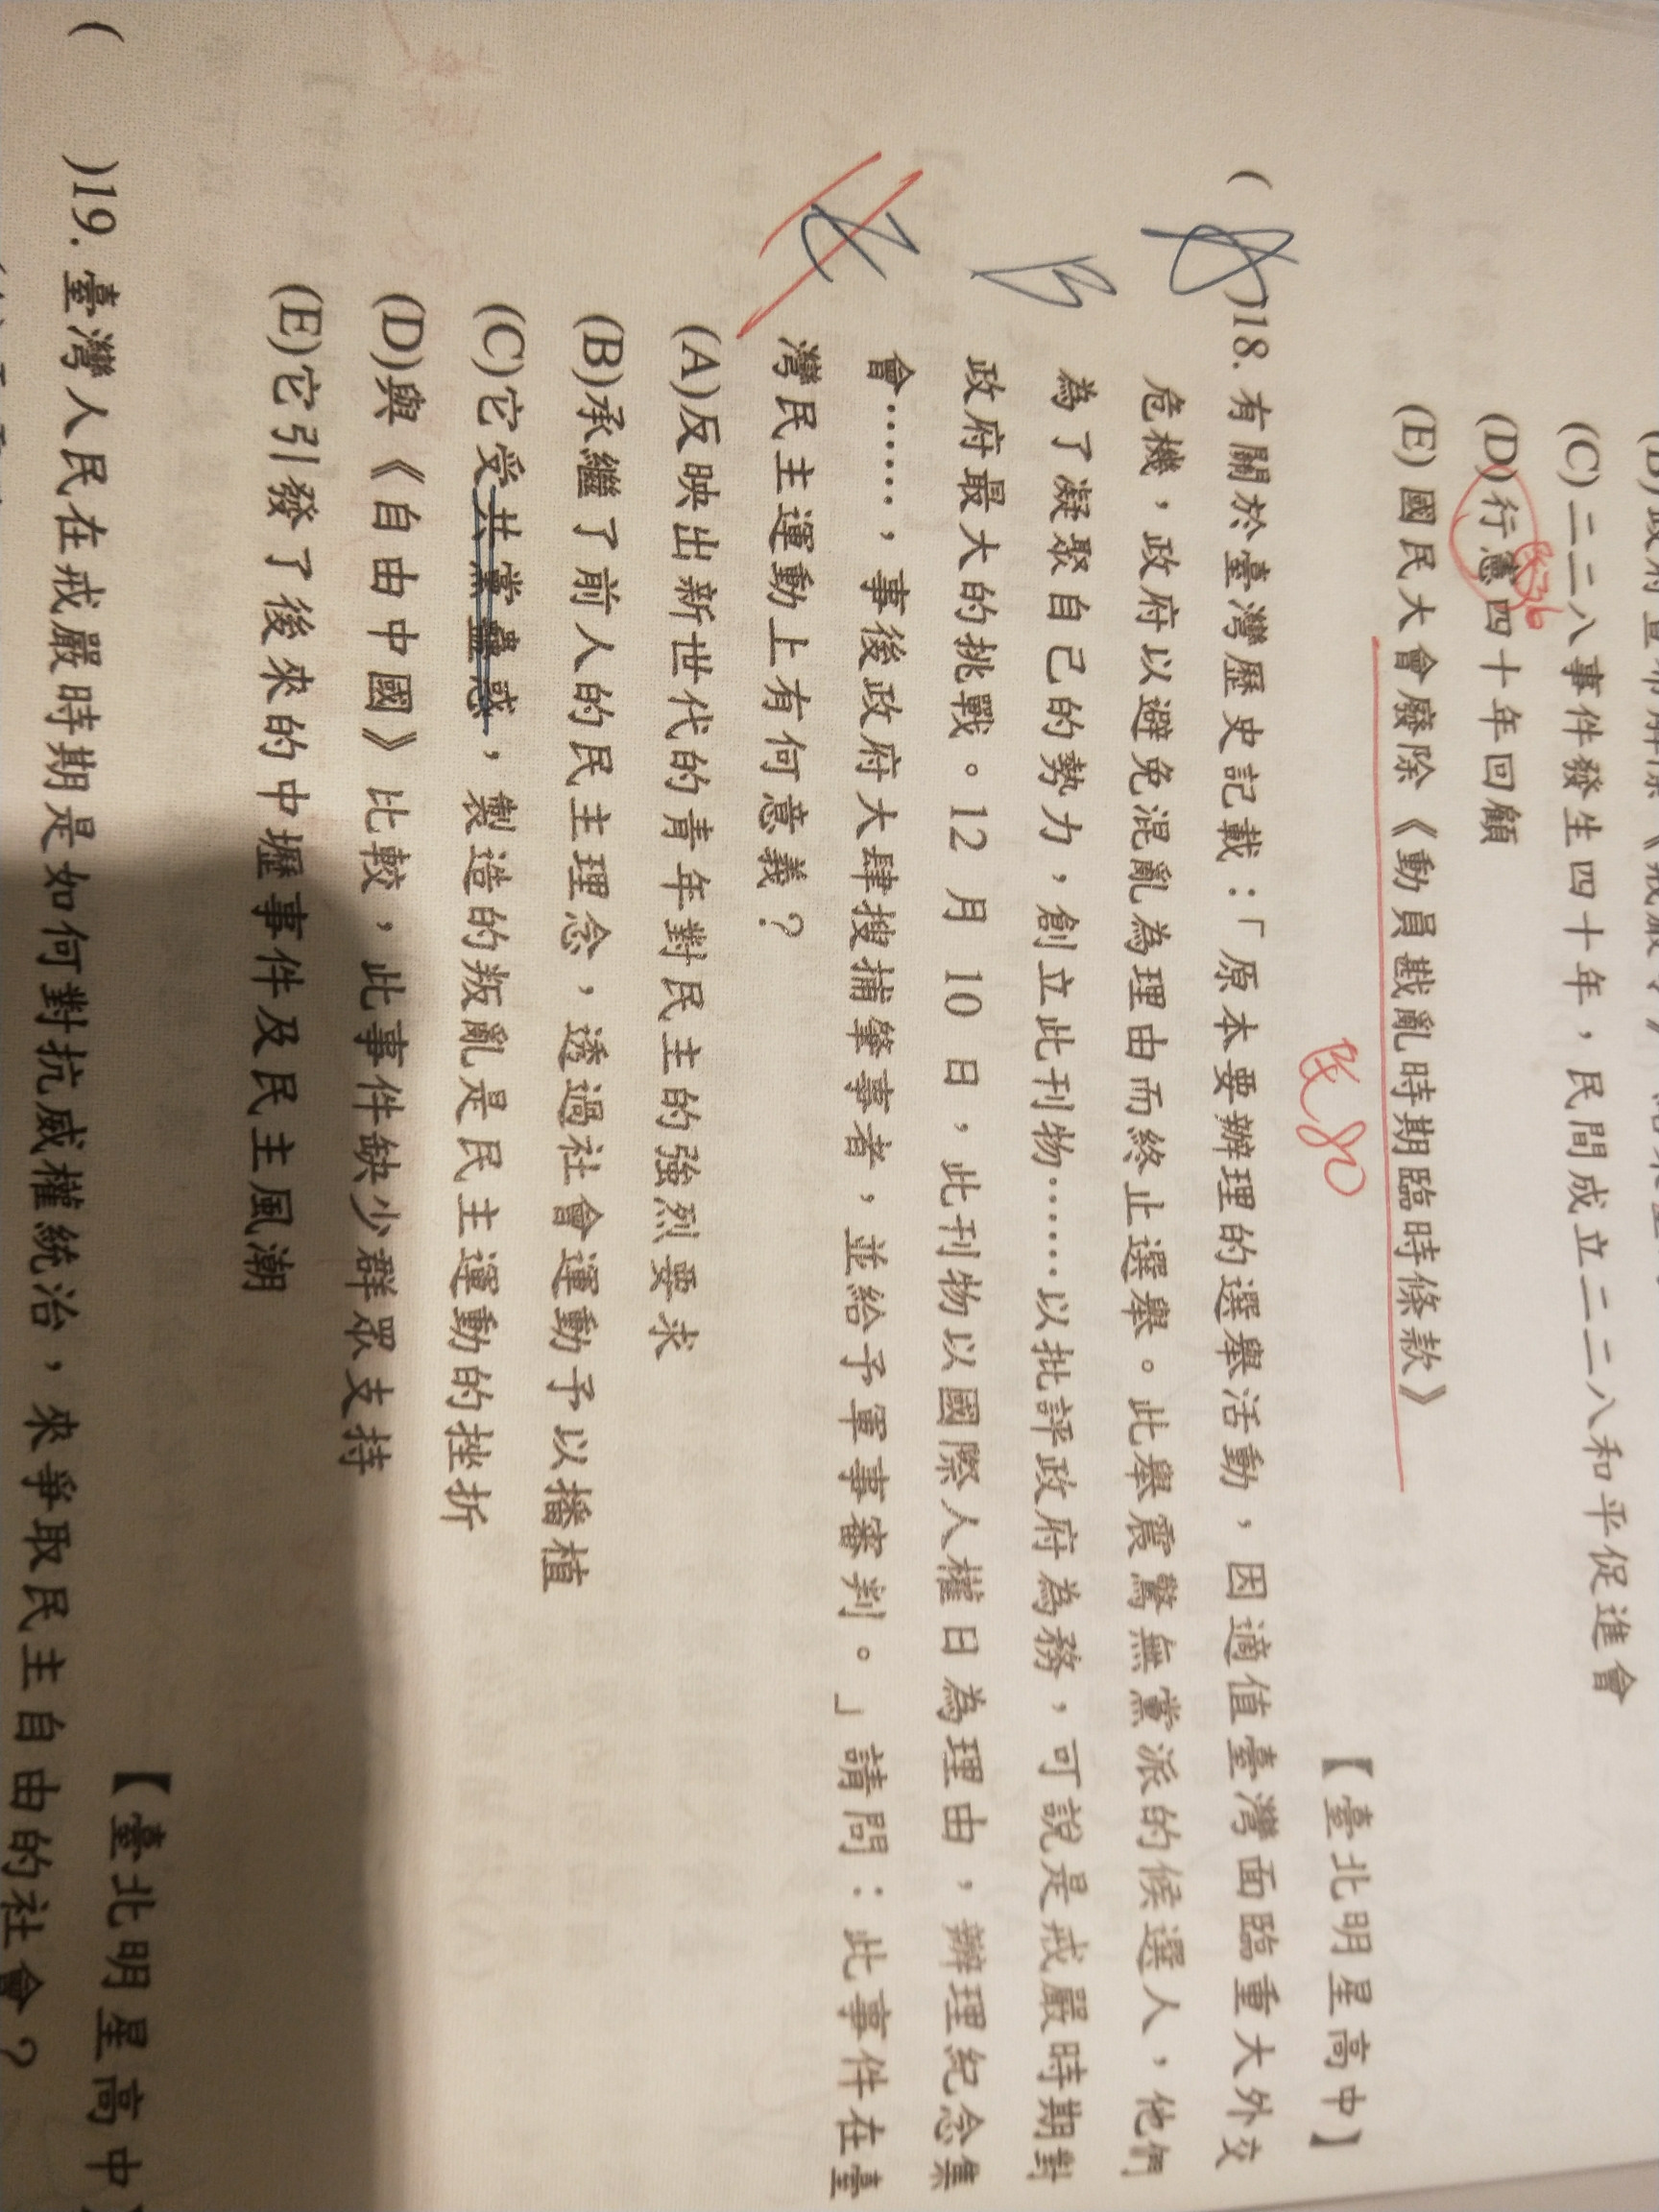 (C)二二八事件發生四十年，民間成立二二八和平促進會
(D)行憲四十年回顧
民36
(E)國民大會廢除《動員戡亂時期臨時條款》
民80
【臺北明星高中】
( )18.有關於臺灣歷史記載：「原本要辦理的選舉活動，因適值臺灣面臨重大外交
危機，政府以避免混亂為理由而終止選舉。此舉震驚無黨派的候選人，他們
為了凝聚自己的勢力，創立此刊物……以批評政府為務，可說是戒嚴時期對
政府最大的挑戰。12 月 10 日，此刊物以國際人權日為理由，辦理紀念集
會……，事後政府大肆搜捕肇事者，並給予軍事審判。」請問：此事件在臺
灣民主運動上有何意義？
(A)反映出新世代的青年對民主的強烈要求
(B)承繼了前人的民主理念，透過社會運動予以播植
(C)它受共黨蠱惑，製造的叛亂是民主運動的挫折
(D)與《自由中國》比較，此事件缺少群眾支持
(E)它引發了後來的中壢事件及民主風潮
【臺北明星高中】
( )19.臺灣人民在戒嚴時期是如何對抗威權統治，來爭取民主自由的社會？